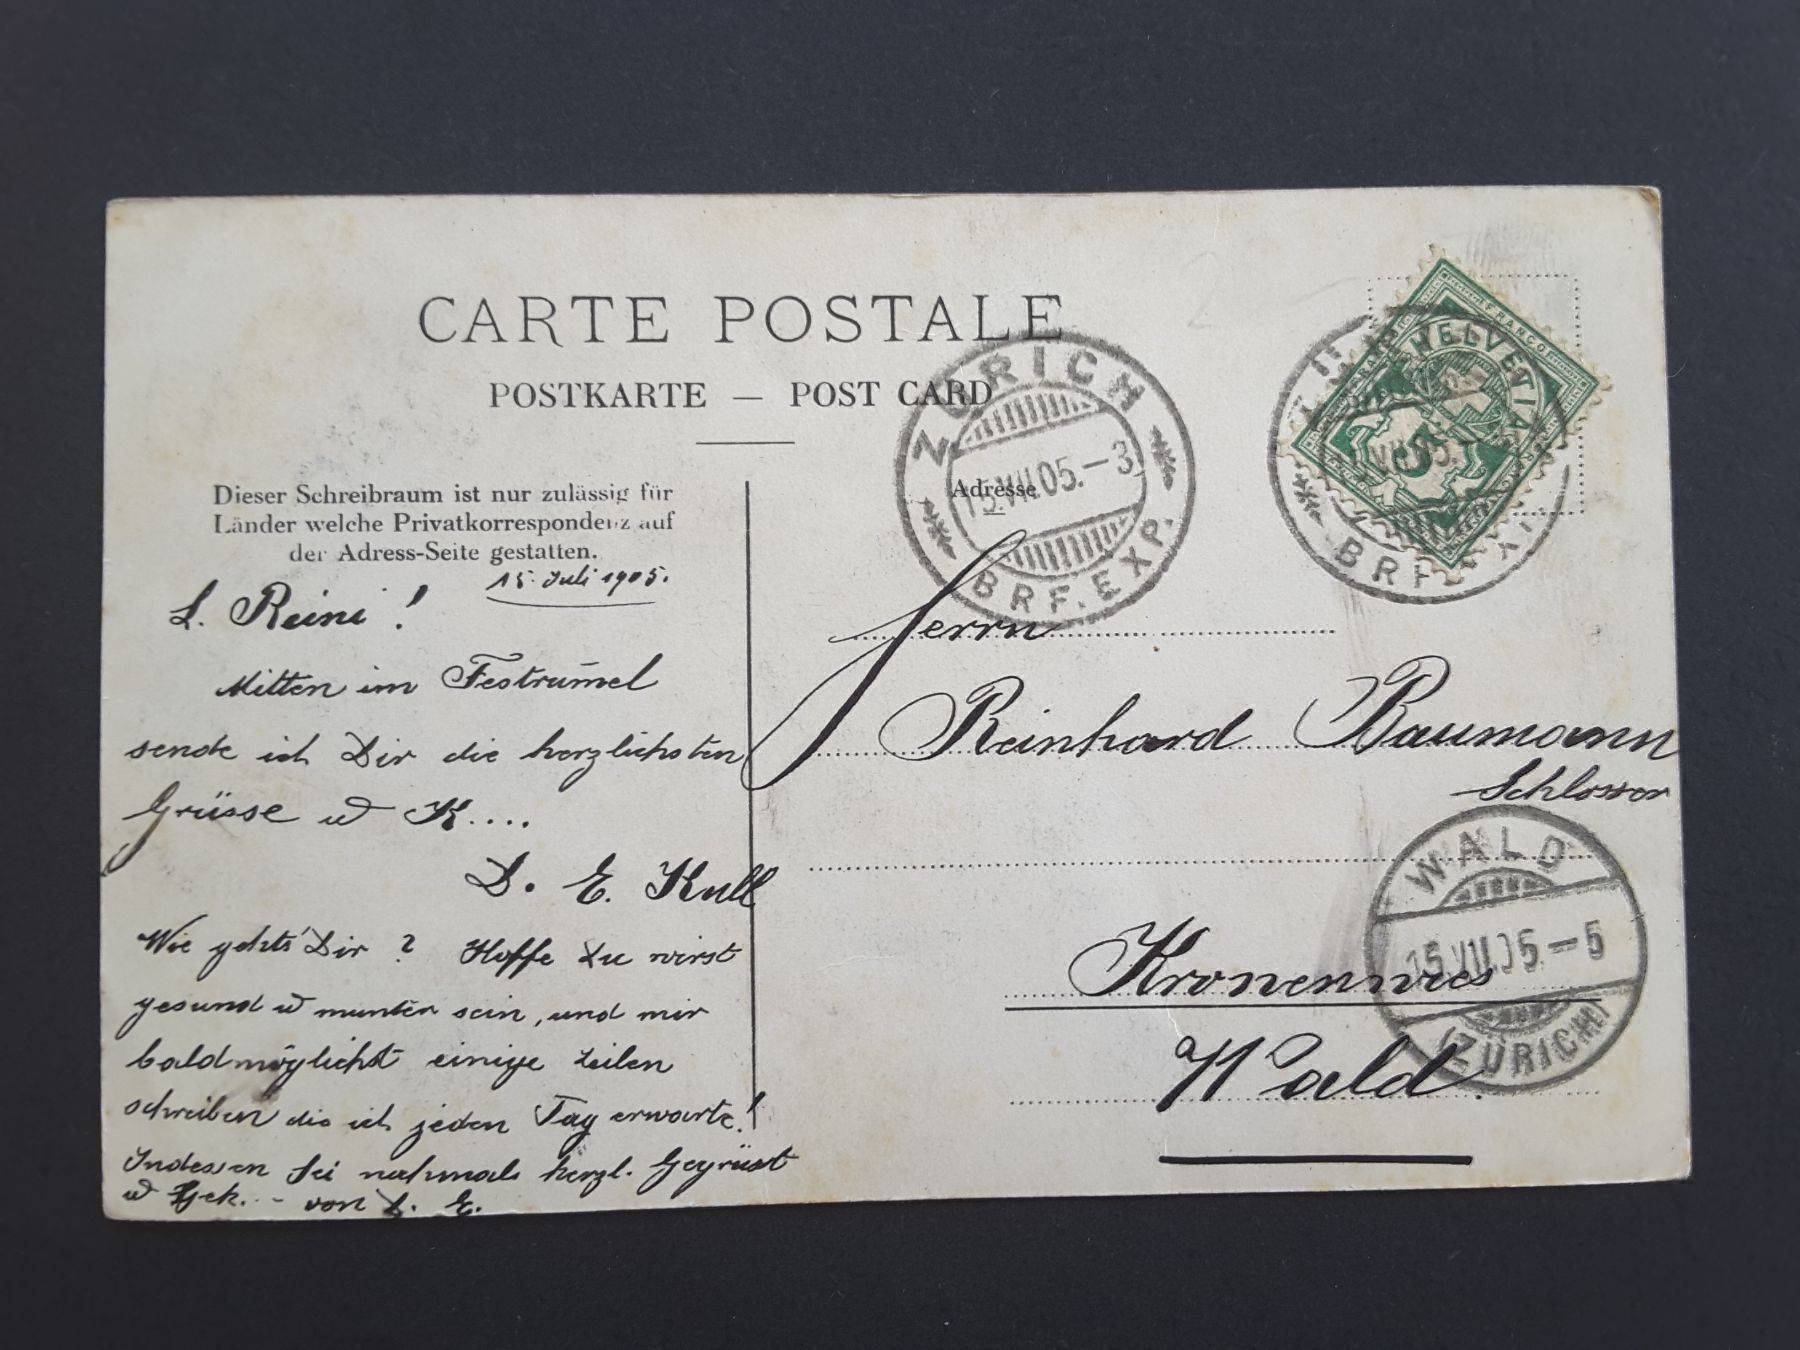 CARTE POSTALE
POSTKARTE — POST CARD
Dieser Schreibraum ist nur zulässig für
Länder welche Privatkorrespondenz auf
der Adress-Seite gestatten.
15. Juli 1905.
L. Reini!
Mitten im Festrum̄el
sende ich Dir die herzlichsten
Grüsse u K....
D. E. Kull
Wie gehts Dir? Hoffe Du wirst
gesund u munter sein, und mir
baldmöglichst einige Zeilen
schreiben die ich jeden Tag erwarte!
Indessen sei nochmals herzl. Gegrüsst
u Gek. .- von D. E.
Adresse
Herrn
Reinhard Baumann
Schlosser
Kronenwies
Wald.
ZÜRICH
15.VII.05.-3
BRF. EXP.
FRANCO
HELVETIA
5
VII.05.
BRF.
WALD
15.VII.05-5
(ZÜRICH)